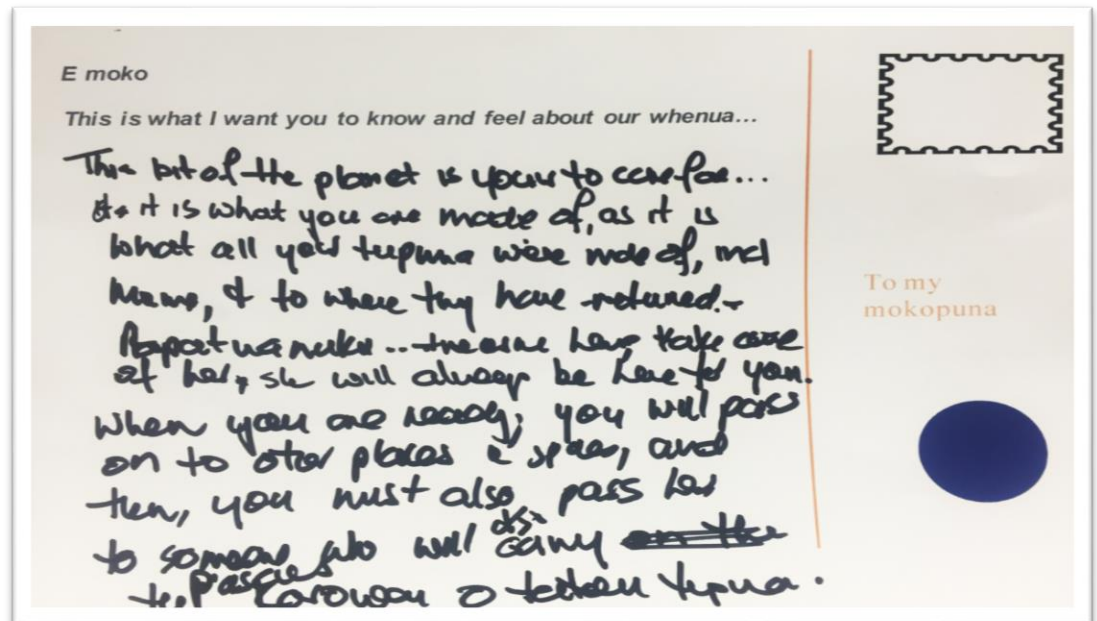 E moko
This is what I want you to know and feel about our whenua...
This bit of the planet is yours to care for...
it is what you are made of, as it is
what all your tupuna were made of, incl
Mama, & to where they have returned.
Papatuanuku.. treasure her, take care
of her, she will always be here for you.
When you are ready, you will pass
on to other places & spaces, and
then, you must also pass her
to someone who will also carry on the
te, o tupuna.
To my
mokopuna